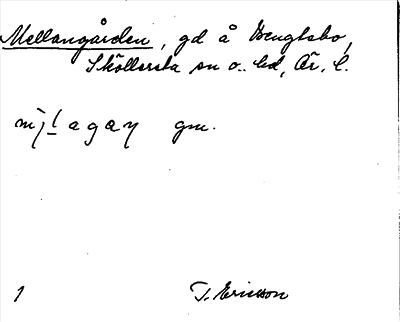 Mellangården, gd å Bengtsbo,
Sköllersta sn o. hd, Ör. l.
gm.
1 T. Ericsson